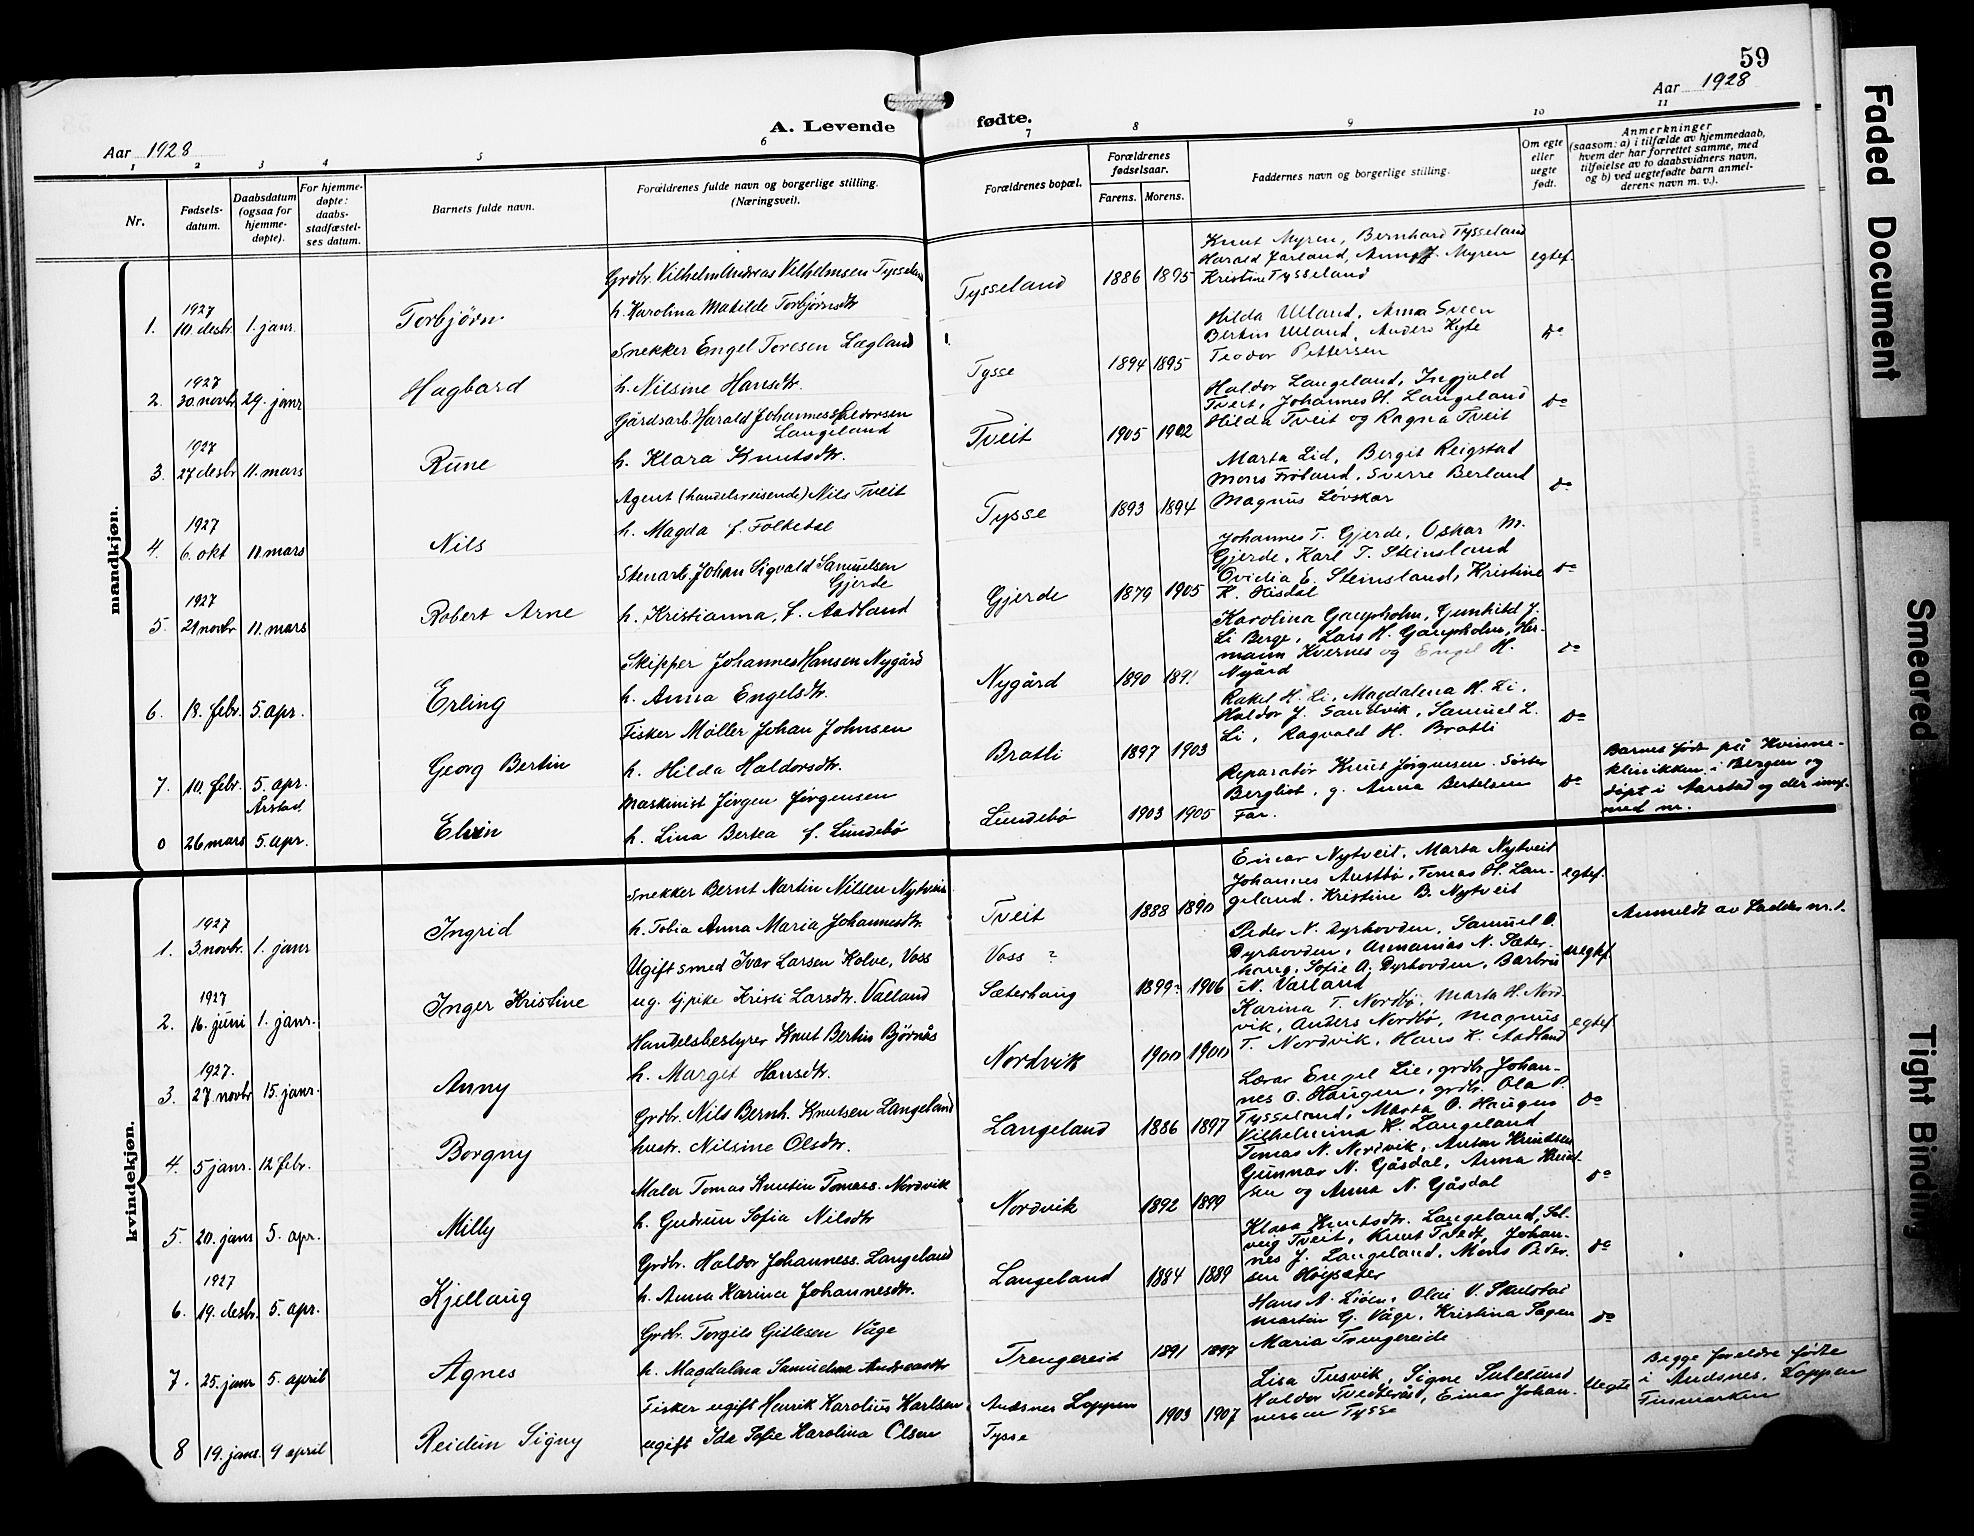 59
Aar 1928
Aar 1928
A. Levende fødte.
1 2 3 4 5 6 7 8 9 10 11
Nr.
Fødsels-
datum.
Daabsdatum
(ogsaa for
hjemme-
døpte).
For hjemme-
døpte:
daabs-
stadfæstel-
ses datum.
Barnets fulde navn.
Forældrenes fulde navn og borgerlige stilling.
(Næringsvei).
Forældrenes bopæl.
Forældrenes
fødselsaar.
Farens. Morens.
Faddernes navn og borgerlige stilling.
Om egte
eller
uegte
født.
Anmerkninger
(saasom: a) i tilfælde av hjemmedaab,
hvem der har forrettet samme, med
tilføielse av to daabsvidners navn,
og b) ved uegtefødte barn anmel-
derens navn m. v.).
mandkjøn.
1. 1927
10. desbr. 1. janr. Torbjørn
Grdbr. Vilhelm Andreas Vilhelmsen Tysseland
h. Karolina Matilde Torbjørnsdtr
Tysseland 1886 1895
Knut Myren, Bernhard Tysseland
Harald Jarland, Anna J. Myren
Kristine Tysseland
egtef.
2. 1927
30. novbr 29. janr Hagbard
Snekker Engel Toresen Lægland
h. Nilsine Hansdtr.
Tysse 1894 1895
Hilda Ulland, Anna Sveen
Bertin Ulland, Anders Hyte
Teodor Pettersen
do
3. 1927
27 desbr 11. mars Rune
Gårdsarb. Harald Johannes Haldorsen
Langeland
h. Klara Knutsdtr.
Tveit 1905 1902
Haldor Langeland, Ingjald
Tveit, Johannes H. Langeland
Hilda Tveit og Ragna Tveit
do
4. 1927
6. okt 11. mars Nils
Agent (handelsreisende) Nils Tveit
h. Magda f. Folkedal
Tysse 1893 1894
Marta Lid, Bergit Reigstad
Mons Frøland, Sverre Berland
Magnus Løvskar
do
5. 1927
21 novbr 11. mars Robert Arne
Stenarb. Johan Sigvald Samuelsen
Gjerde
h. Kristianna, f. Aadland
Gjerde 1879 1905
Johannes T. Gjerde, Oskar M.
Gjerde, Karl T. Steinsland
Ovidia E. Steinsland, Kristine
K. Hisdal
do
6. 18. febr. 5. apr. Erling
Skipper Johannes Hansen Nygård
h. Anna Engelsdtr.
Nygård 1890 1891
Karolina Gaupholm, Gunhild J.
Li Berge, Lars H. Gaupholm, Her-
mann Kvernes og Engel H.
Nygård
do
7. 10. febr. 5. apr. Georg Bertin
Fisker Møller Johan Johnsen
h. Hilda Haldorsdtr.
Bratli 1897 1903
Rakel H. Li, Magdalena H. Li,
Haldor J. Sandvik, Samuel L.
Li, Ragvald H. Bratli
do
0 26 mars Årstad
5. apr. Elvin
Maskinist Jørgen Jørgensen
h. Lina Bertea f. Lundebø
Lundebø 1903 1905
Reparatør Knut Jørgensen. Søster
Bergliot, g. Anna Bertelsen
Far.
do
Barnet født på Kvinne-
klinikken i Bergen og
døpt i Aarstad og der innf.
med nr.
kvindekjøn.
1. 1927
3 novbr. 1. janr Ingrid
Snekker Bernt Martin Nilsen Nytveit
h. Tobia Anna Maria Johannesdtr.
Tveit 1888 1890
Einar Nytveit, Marta Nytveit
Johannes Austbø, Tomas H. Lan-
geland. Kristine B. Nytveit
egtef.
2. 1927
16. juni 1. janr. Inger Kristine
Ugift smed Ivar Larsen Kolve, Voss
ug. pike Kristi Larsdtr. Valland
Voss ?
Sæterhaug 1899? 1906
Peder N. Dyrhovden, Samuel O.
Dyrhovden, Annanias N. Sæter-
haug, Sofie A. Dyrhovden, Barbro
N. Valland
uegtef.
Anmeldt av Fadder nr. 1.
3. 1927.
27 novbr 15. janr. Anny
Handelsbestyrer Knut Bertin Bjørnås
h. Margit Hansdtr.
Nordvik 1900 1900
Karina T. Nordbø, Marta H. Nord-
vik, Anders Nordbø, Magnus
T. Nordvik, Hans K. Aadland
egtef.
4. 5 janr. 12 febr. Borgny
Grdbr. Nils Bernh. Knutsen Langeland
hustr. Nilsine Olsdtr.
Langeland 1886 1897
Lærar Engel Lie, grdbr Johan-
nes O. Haugen, grdbr. Ola P.
Tysseland, Marta O. Haugen
Vilhelmina K. Langeland
do
5. 20. janr 5. apr. Milly
Maler Tomas Knutin Tomass. Nordvik
h. Gudrun Sofia Nilsdtr
Nordvik 1892 1899
Tomas N. Nordvik, Anton Knudsen
Gunnar N. Gåsdal, Anna Knud-
sen og Anna N. Gåsdal
do
6. 1927
19. desbr. 5. apr. Kjellaug
Grdbr. Haldor Johanness. Langeland
h. Anna Karina Johannesdtr.
Langeland 1884 1889
Klara Knutsdtr. Langeland, Sol-
veig Tveit, Knut Tvedt, Johan-
nes J. Langeland, Mons Peder-
sen Høysæter
do
7. 25. janr 5. april Agnes
Grdbr. Torgils Gitlesen Våge
h. Magdalena Samueline Andreasdtr
Trengereid 1891 1897
Hans A. Liøen, Olai V. Skulstad
Martin G. Våge, Kristina Sagen
Maria Trengereide
do
8 19. janr. 9 april Reidun Signy
Fisker ugift Henrik Karolius Karlsen,
ugift Ida Sofie Karolina Olsen
Andsnes Loppen
Tysse 1903 1907
Lisa Tusvik, Signe Sulesund
Haldor Tvedterås, Einar Johan-
nessen Tysse
Uegte
Begge foreldre fødte
i Andsnes, Loppen
Finmarken
Faded Document
Smeared
Tight Binding